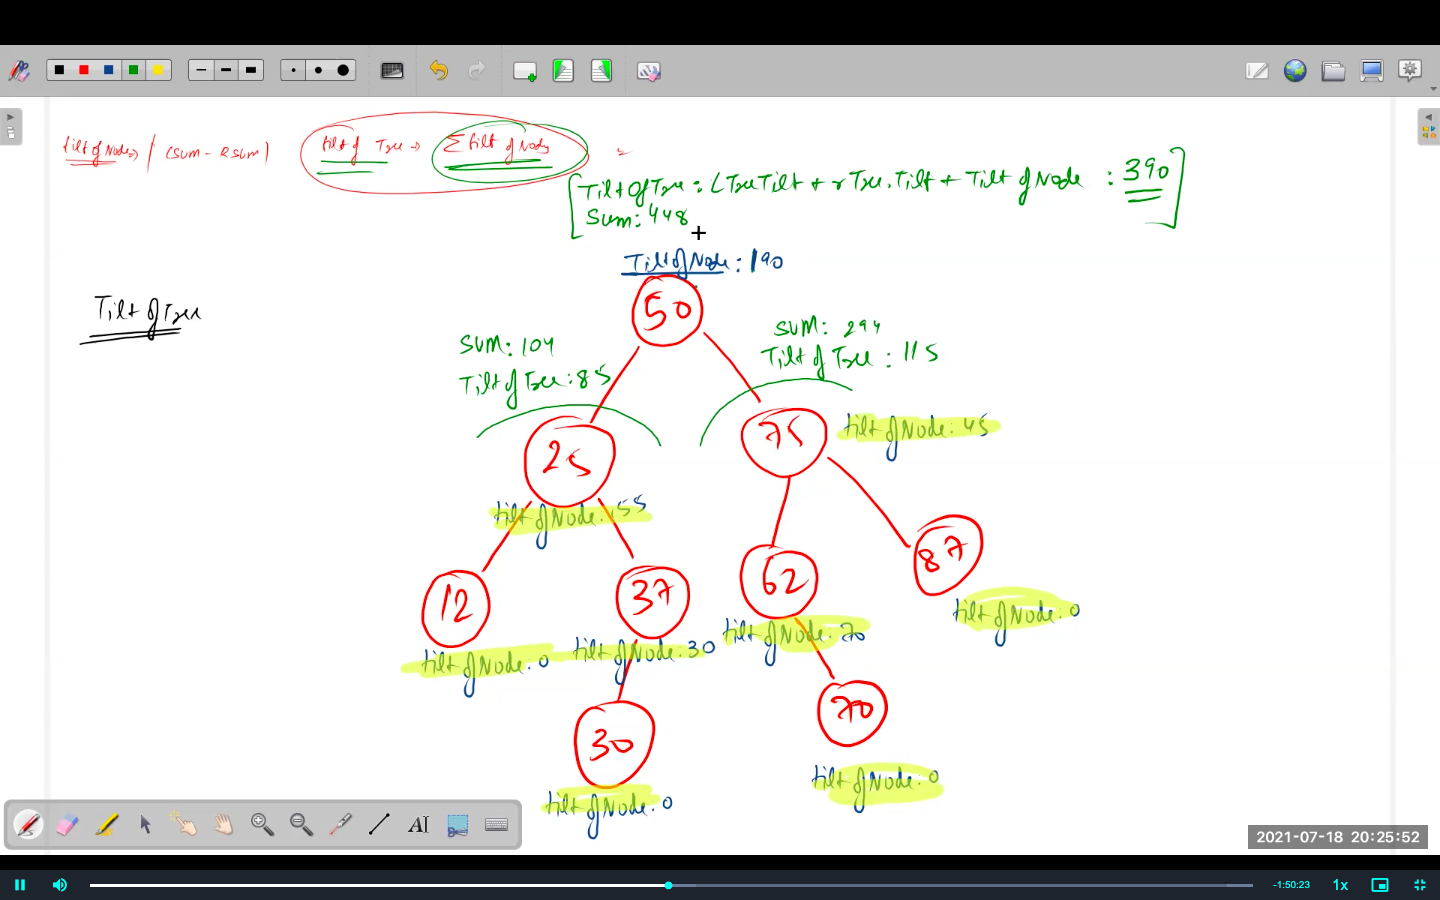 tilt of Node → | lsum - rsum |
tilt of Tree → Σ tilt of Nodes =
Tilt Of Tree : LTreeTilt + rTree.Tilt + Tilt of Node : 390
Sum: 448
Tilt of Node : 190
Tilt of Tree
50
Sum: 104
Tilt of Tree : 85
Sum: 294
Tilt of Tree : 115
25
tilt of Node: 55
75
tilt of Node: 45
12
tilt of Node: 0
37
tilt of Node: 30
62
tilt of Node: 70
87
tilt of Node: 0
30
tilt of Node: 0
70
tilt of Node: 0
AI
2021-07-18 20:25:52
-1:50:23
1x